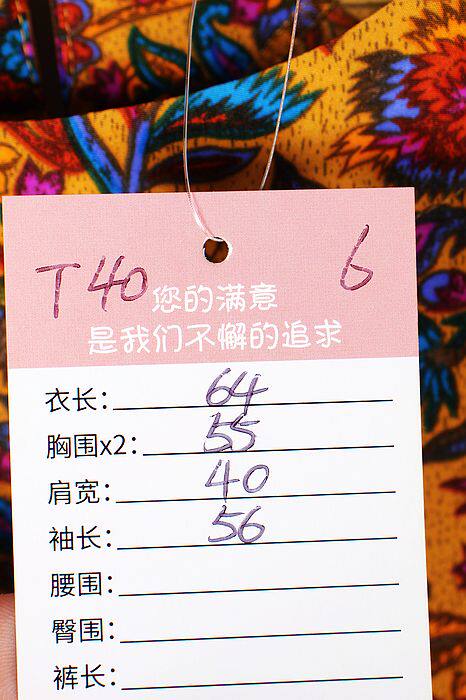 T40 6
您的满意
是我们不懈的追求
衣长: 64
胸围x2: 55
肩宽: 40
袖长: 56
腰围:
臀围:
裤长: